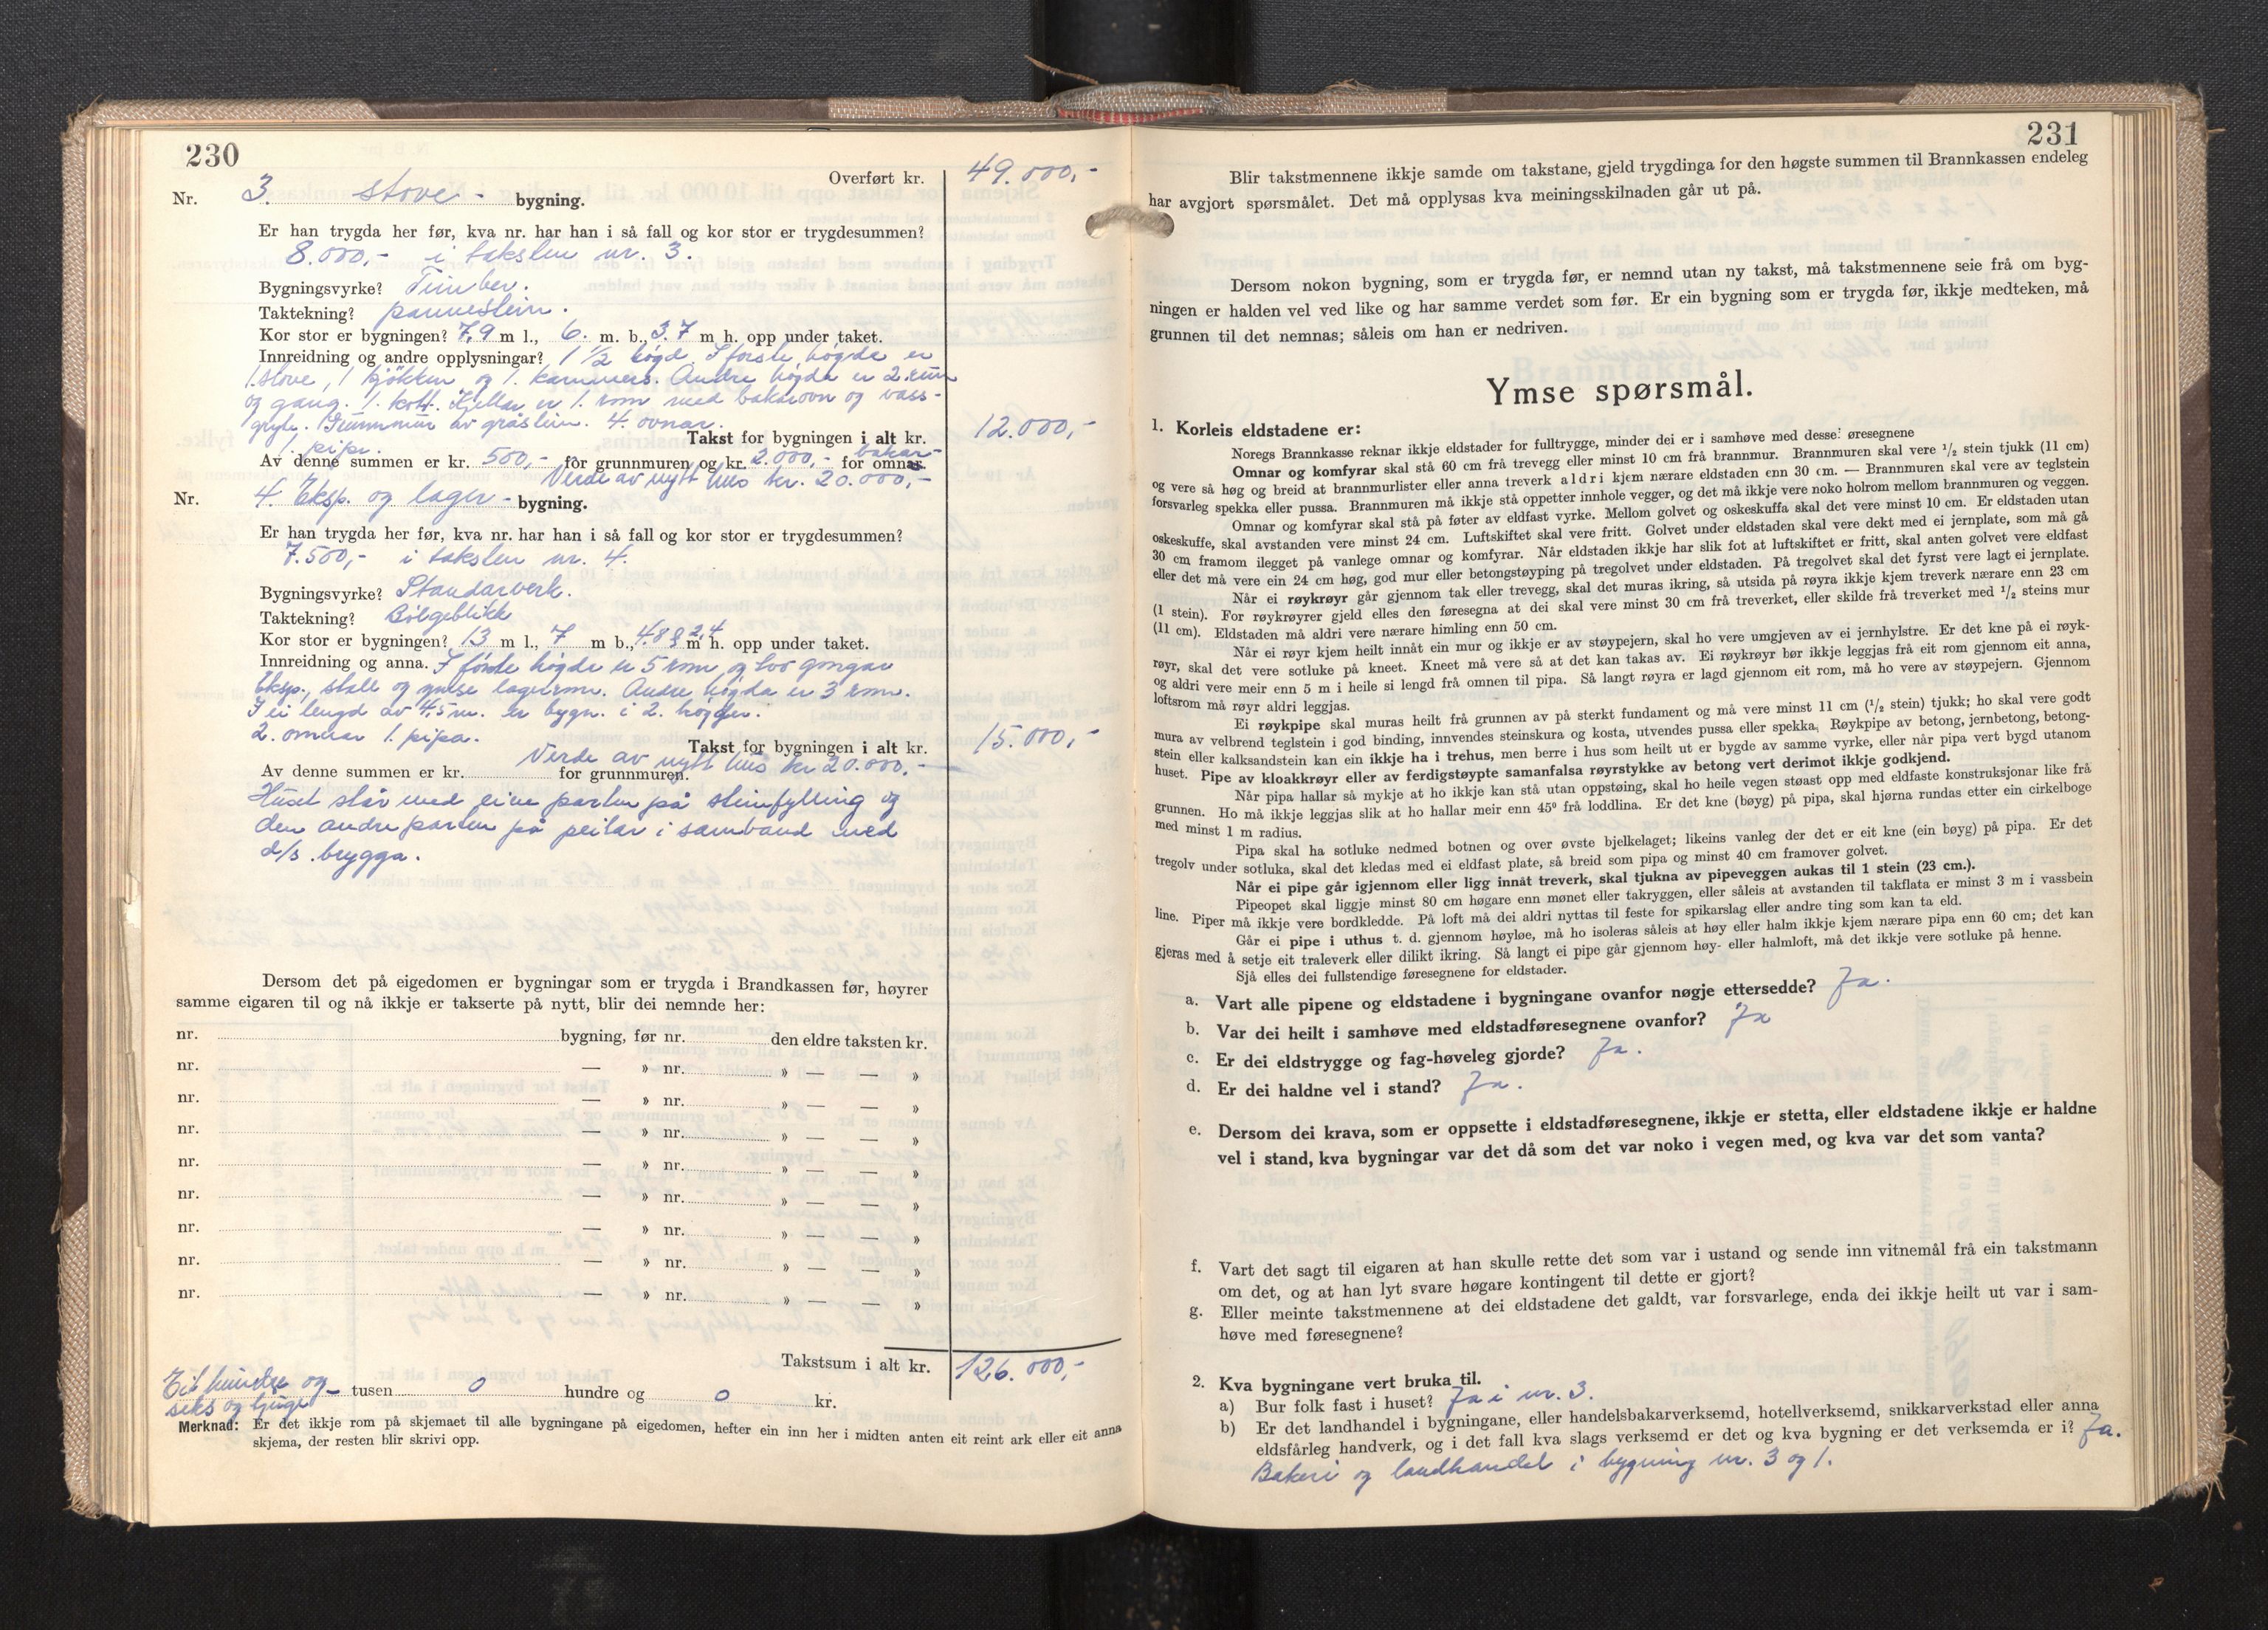 230
Overført kr. 49.000,-
Nr. 3. stove - bygning.
Er han trygda her før, kva nr. har han i så fall og kor stor er trygdesummen?
8.000,- i taksten nr. 3.
Bygningsvyrke? Timber.
Taktekning? pannestein.
Kor stor er bygningen? 7,9 m l., 6. m. b., 3,7 m h. opp under taket.
Innreidning og andre opplysningar? 1 1/2 høgd. I første høgde er
1 stove, 1 kjökken og 1. kammers. Andre høgda er 2. rum
og gang. 1. kott. Kjellar er 1. rom med bakarovn og vass-
gryte. Grunnmur av gråstein. 4. ovnar.
1. pipe.
Takst for bygningen i alt kr. 12.000,-
Av denne summen er kr. 500,- for grunnmuren og kr. 2.000,- for bakar- omnar.
Verde av nytt hus kr. 20.000,-
Nr. 4. Eksp. og lager - bygning.
Er han trygda her før, kva nr. har han i så fall og kor stor er trygdesummen?
7.500,- i taksten nr. 4.
Bygningsvyrke? Standarverk.
Taktekning? Bölgeblikk
Kor stor er bygningen? 13 m l., 7 m b., 4,8 og 2,4 m h. opp under taket.
Innreidning og anna. I første høgde er 5 rom og tvo gongar
Eksp., stall og ymse lagerrom. Andre høgda er 3 rom.
I ei lengd av 4,5 m. er bygn. i 2. høgder.
2. omnar 1. pipa.
Takst for bygningen i alt kr. 15.000,-
Verde av nytt hus kr 20.000.-
Av denne summen er kr. for grunnmuren.
Huset står med eine parten på steinfylling og
den andre parten på peilar i samband med
d/s. brygga.
Dersom det på eigedomen er bygningar som er trygda i Brandkassen før, høyrer
samme eigaren til og nå ikkje er takserte på nytt, blir dei nemnde her:
nr. bygning, før nr. den eldre taksten kr.
nr. — » nr. » — — »
nr. — » nr. » — — »
nr. — » nr. » — — »
nr. — » nr. » — — »
nr. — » nr. » — — »
nr. — » nr. » — — »
nr. — » nr. » — — »
nr. — » nr. » — — »
Takstsum i alt kr. 126.000,-
Eit hundre og
seks og tjuge tusen 0 hundre og 0 kr.
Merknad: Er det ikkje rom på skjemaet til alle bygningane på eigedomen, hefter ein inn her i midten anten eit reint ark eller eit anna
skjema, der resten blir skrivi opp.
231
Blir takstmennene ikkje samde om takstane, gjeld trygdinga for den høgste summen til Brannkassen endeleg
har avgjort spørsmålet. Det må opplysas kva meiningsskilnaden går ut på.
Dersom nokon bygning, som er trygda før, er nemnd utan ny takst, må takstmennene seie frå om byg-
ningen er halden vel ved like og har samme verdet som før. Er ein bygning som er trygda før, ikkje medteken, må
grunnen til det nemnas; såleis om han er nedriven.
Ymse spørsmål.
1. Korleis eldstadene er:
Noregs Brannkasse reknar ikkje eldstader for fulltrygge, minder dei er i samhøve med desse: øresegnene
Omnar og komfyrar skal stå 60 cm frå trevegg eller minst 10 cm frå brannmur. Brannmuren skal vere 1/2 stein tjukk (11 cm)
og vere så høg og breid at brannmurlister eller anna treverk aldri kjem nærare eldstaden enn 30 cm. — Brannmuren skal vere av teglstein
forsvarleg spekka eller pussa. Brannmuren må ikkje stå oppetter innhole vegger, og det må ikkje vere noko holrom mellom brannmuren og veggen.
Omnar og komfyrar skal stå på føter av eldfast vyrke. Mellom golvet og oskeskuffa skal det vere minst 10 cm. Er eldstaden utan
oskeskuffe, skal avstanden vere minst 24 cm. Luftskiftet skal vere fritt. Golvet under eldstaden skal vere dekt med ei jernplate, som må gå
30 cm framom ilegget på vanlege omnar og komfyrar. Når eldstaden ikkje har slik fot at luftskiftet er fritt, skal anten golvet vere eldfast
eller det må vere ein 24 cm høg, god mur eller betongstøyping på tregolvet under eldstaden. På tregolvet skal det fyrst vere lagt ei jernplate.
Når ei røykrøyr går gjennom tak eller trevegg, skal det muras ikring, så utsida på røyra ikkje kjem treverk nærare enn 23 cm
(1 stein). For røykrøyrer gjeld elles den føresegna at dei skal vere minst 30 cm frå treverket, eller skilde frå treverket med 1/2 steins mur
(11 cm). Eldstaden må aldri vere nærare himling enn 50 cm.
Når ei røyr kjem heilt innåt ein mur og ikkje er av støypejern, skal ho vere umgjeven av ei jernhylstre. Er det kne på ei røyk-
røyr, skal det vere sotluke på kneet. Kneet må vere så at det kan takas av. Ei røykrøyr bør ikkje leggjas frå eit rom gjennom eit anna,
og aldri vere meir enn 5 m i heile si lengd frå omnen til pipa. Så langt røyra er lagd gjennom eit rom, må ho vere av støypejern. Gjennom
loftsrom må røyr aldri leggjas.
Ei røykpipe skal muras heilt frå grunnen av på sterkt fundament og må vere minst 11 cm (1/2 stein) tjukk; ho skal vere godt
mura av velbrend teglstein i god binding, innvendes steinskura og kosta, utvendes pussa eller spekka. Røykpipe av betong, jernbetong, betong-
stein eller kalksandstein kan ein ikkje ha i trehus, men berre i hus som heilt ut er bygde av samme vyrke, eller når pipa vert bygd utanom
huset. Pipe av kloakkrøyr eller av ferdigstøypte samanfalsa røyrstykke av betong vert derimot ikkje godkjend.
Når pipa hallar så mykje at ho ikkje kan stå utan oppstøing, skal ho heile vegen støast opp med eldfaste konstruksjonar like frå
grunnen. Ho må ikkje leggjas slik at ho hallar meir enn 45° frå loddlina. Er det kne (bøyg) på pipa, skal hjørna rundas etter ein cirkelboge
med minst 1 m radius.
Pipa skal ha sotluke nedmed botnen og over øvste bjelkelaget; likeins vanleg der det er eit kne (ein bøyg) på pipa. Er det
tregolv under sotluka, skal det kledas med ei eldfast plate, så breid som pipa og minst 40 cm framover golvet.
Når ei pipe går igjennom eller ligg innåt treverk, skal tjukna av pipeveggen aukas til 1 stein (23 cm.).
Pipeopet skal liggje minst 80 cm høgare enn mønet eller takryggen, eller såleis at avstanden til takflata er minst 3 m i vassbein
line. Piper må ikkje vere bordkledde. På loft må dei aldri nyttas til feste for spikarslag eller andre ting som kan ta eld.
Går ei pipe i uthus t. d. gjennom høyløe, må ho isoleras såleis at høy eller halm ikkje kjem nærare pipa enn 60 cm; det kan
gjeras med å setje eit traleverk eller dilikt ikring. Så langt ei pipe går gjennom høy- eller halmloft, må det ikkje vere sotluke på henne.
Sjå elles dei fullstendige føresegnene for eldstader.
a. Vart alle pipene og eldstadene i bygningane ovanfor nøgje ettersedde? Ja.
b. Var dei heilt i samhøve med eldstadføresegnene ovanfor? Ja
c. Er dei eldstrygge og fag-høveleg gjorde? Ja.
d. Er dei haldne vel i stand? Ja.
e. Dersom dei krava, som er oppsette i eldstadføresegnene, ikkje er stetta, eller eldstadene ikkje er haldne
vel i stand, kva bygningar var det då som det var noko i vegen med, og kva var det som vanta?
f. Vart det sagt til eigaren at han skulle rette det som var i ustand og sende inn vitnemål frå ein takstmann
om det, og at han lyt svare høgare kontingent til dette er gjort?
g. Eller meinte takstmennene at dei eldstadene det galdt, var forsvarlege, enda dei ikkje heilt ut var i sam-
høve med føresegnene?
2. Kva bygningane vert bruka til.
a) Bur folk fast i huset? Ja i nr. 3.
b) Er det landhandel i bygningane, eller handelsbakarverksemd, hotellverksemd, snikkarverkstad eller anna
eldsfårleg handverk, og i det fall kva slags verksemd er det og kva bygning er det verksemda er i? Ja.
Bakeri og landhandel i bygning nr. 3 og 1.